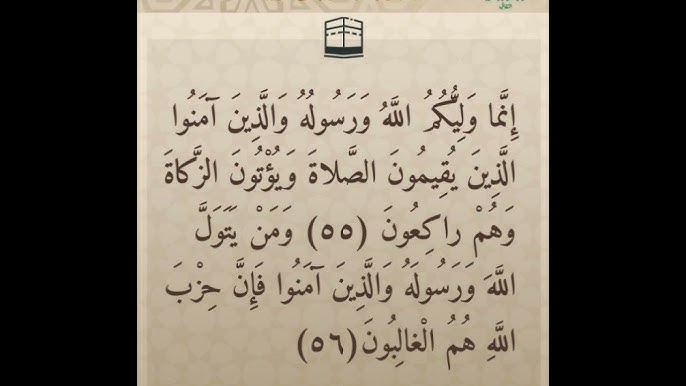 إِنَّما وَلِيُّكُمُ اللَّهُ وَرَسُولُهُ وَالَّذِينَ آمَنُوا
الَّذِينَ يُقِيمُونَ الصَّلاةَ وَيُؤْتُونَ الزَّكاةَ
وَهُمْ راكِعُونَ (٥٥) وَمَنْ يَتَوَلَّ
اللَّهَ وَرَسُولَهُ وَالَّذِينَ آمَنُوا فَإِنَّ حِزْبَ
اللَّهِ هُمُ الْغالِبُونَ (٥٦)